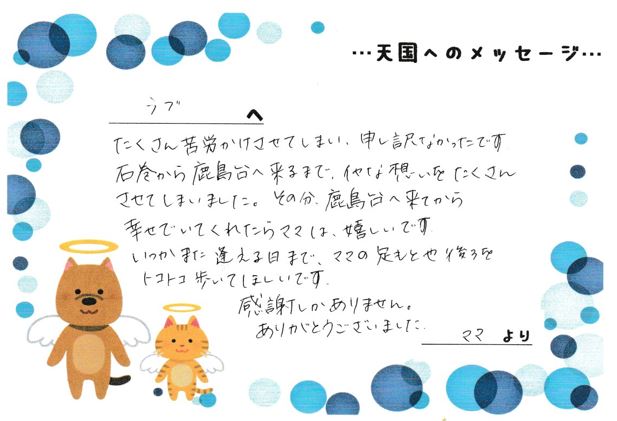 …天国へのメッセージ…
シブ へ
たくさん苦労かけさせてしまい、申し訳なかったです
石巻から鹿島台へ来るまで、イヤな想いをたくさん
させてしまいました。その分、鹿島台へ来てから
幸せでいてくれたらママは、嬉しいです
いつかまた逢える日まで、ママの足もとや後ろを
トコトコ歩いてほしいです。
感謝しかありません。
ありがとうございました。
ママ より